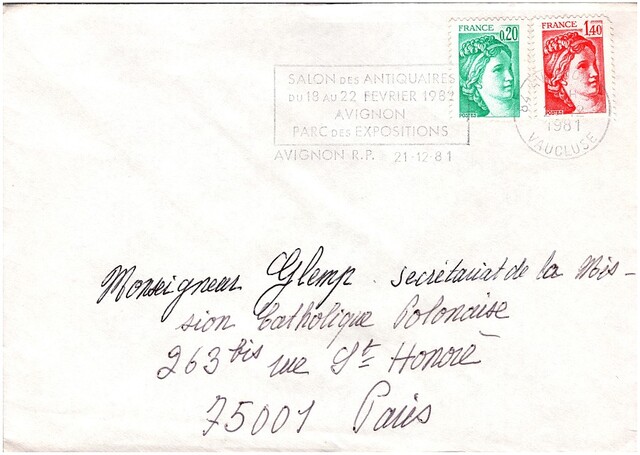 FRANCE 0,20
FRANCE 1,40
POSTES
POSTES
SALON DES ANTIQUAIRES
DU 18 AU 22 FEVRIER 1982
AVIGNON
PARC DES EXPOSITIONS
AVIGNON R.P. 21-12-81
84
1981
VAUCLUSE
Monseigneur Glemp. secrétariat de la Mis-
sion Catholique Polonaise
263 bis rue St Honoré
75001 Paris